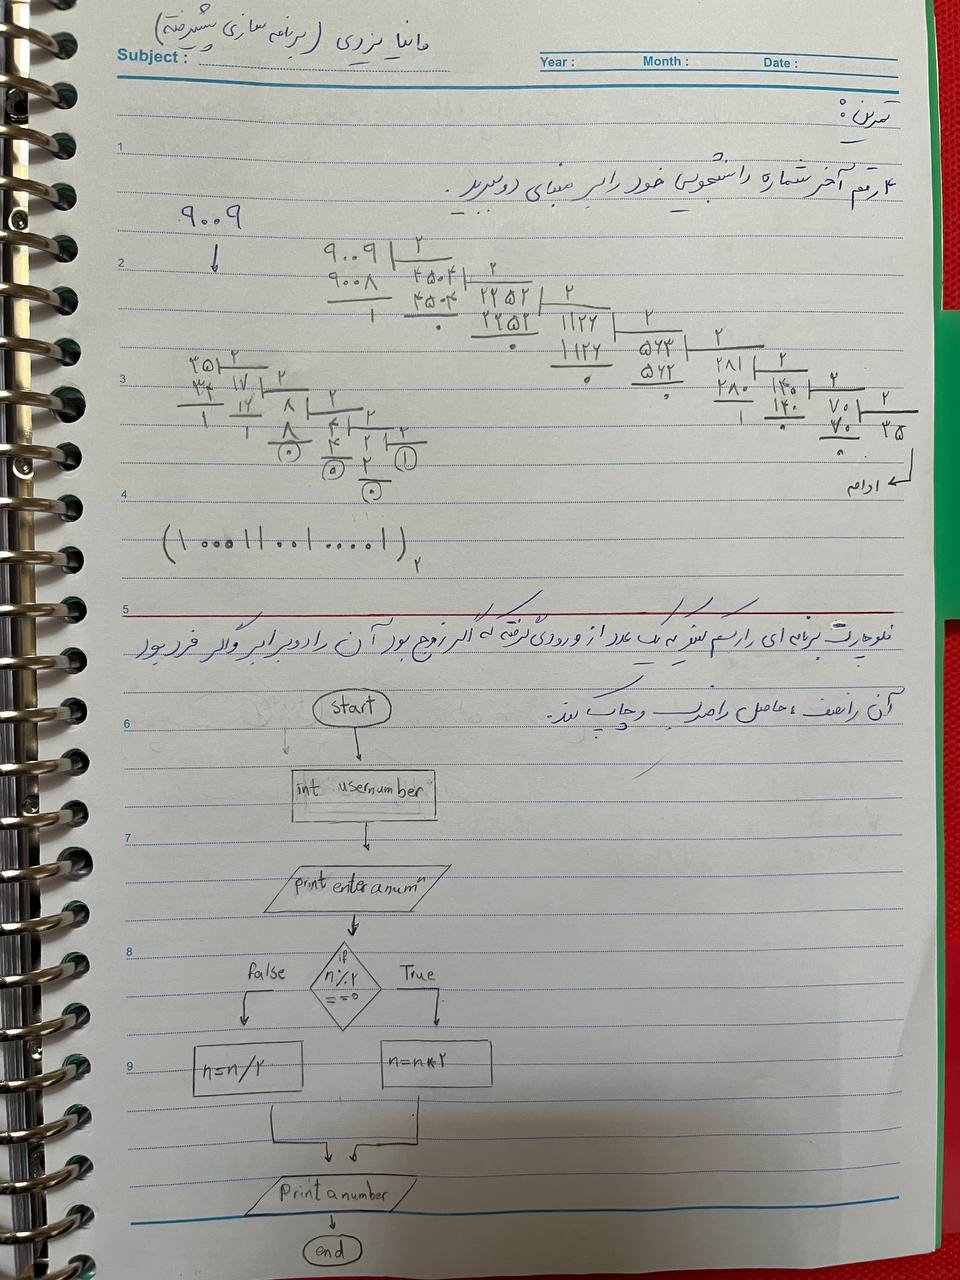 مانیا یزدی (برنامه سازی پیشرفته)
Subject :
Year : Month : Date :
تمرین :
۴ رقم آخر شماره دانشجویی خود را بر مبنای دو ببرید.
۹۰۰۹
۹۰۰۹ ۲
۹۰۰۸ ۴۵۰۴ ۲
۱ ۴۵۰۴ ۲۲۵۲ ۲
۰ ۲۲۵۲ ۱۱۲۶ ۲
۰ ۱۱۲۶ ۵۶۳ ۲
۰ ۵۶۲ ۲۸۱ ۲
۰ ۲۸۰ ۱۴۰ ۲
۱ ۱۴۰ ۷۰ ۲
۰ ۷۰ ۳۵
۰
ادامه
۳۵ ۲
۳۴ ۱۷ ۲
۱ ۱۶ ۸ ۲
۱ ۸ ۴ ۲
۰ ۴ ۲ ۲
۰ ۲ ۱
۰
(۱۰۰۰۱۱۰۰۱۰۰۰۰۱)۲
فلوچارت برنامه ای را رسم کنید که یک عدد از ورودی گرفته که اگر زوج بود آن را دو برابر و اگر فرد بود
آن را نصف ، حاصل را ضرب و چاپ کند.
start
int usernumber
print enter a num"
if
n%۲
==0
False
True
n=n/۲
n=n*۲
print a number
end
1
2
3
4
5
6
7
8
9